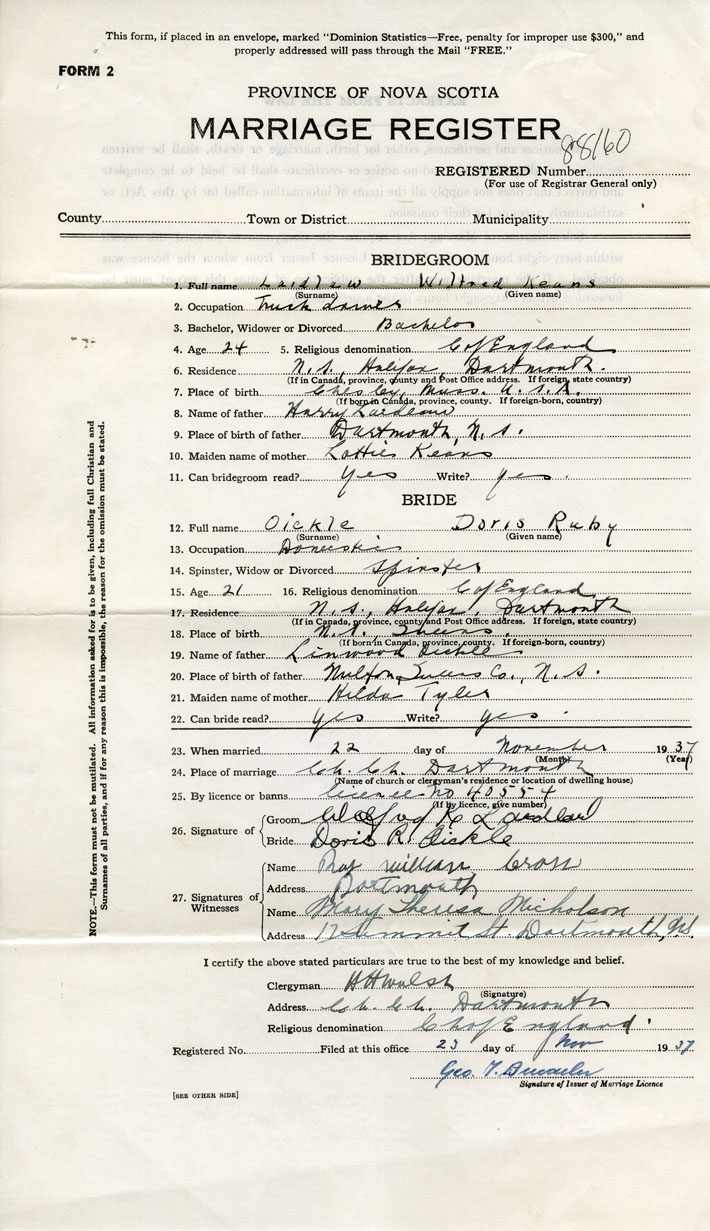 This form, if placed in an envelope, marked "Dominion Statistics—Free, penalty for improper use $300," and
properly addressed will pass through the Mail "FREE."
FORM 2
PROVINCE OF NOVA SCOTIA
MARRIAGE REGISTER
88160
REGISTERED Number
(For use of Registrar General only)
County Town or District Municipality
BRIDEGROOM
1. Full name Laidlaw Wilfred Keans
(Surname) (Given name)
2. Occupation Truck
3. Bachelor, Widower or Divorced Bachelor
4. Age 24 5. Religious denomination C of England
6. Residence N.S., Halifax, Dartmouth.
(If in Canada, province, county and Post Office address. If foreign, state country)
7. Place of birth Mass. U.S.A.
(If born in Canada, province, county. If foreign-born, country)
8. Name of father Harry
9. Place of birth of father Dartmouth, N.S.
10. Maiden name of mother Lottie Keans
11. Can bridegroom read? Yes Write? Yes.
BRIDE
12. Full name Oickle Doris Ruby
(Surname) (Given name)
13. Occupation Domestic
14. Spinster, Widow or Divorced Spinster
15. Age 21 16. Religious denomination C of England
17. Residence N.S., Halifax, Dartmouth
(If in Canada, province, county and Post Office address. If foreign, state country)
18. Place of birth N.S. Queens.
(If born in Canada, province, county. If foreign-born, country)
19. Name of father Linwood Oickle
20. Place of birth of father Milton, Queens Co., N.S.
21. Maiden name of mother Hilda Tyler
22. Can bride read? Yes Write? Yes.
23. When married 22 day of November 1937
(Month) (Year)
24. Place of marriage Ch. Ch. Dartmouth
(Name of church or clergyman's residence or location of dwelling house)
25. By licence or banns licence no 40554
(If by licence, give number)
26. Signature of
Groom K
Bride Doris R. Oickle
27. Signatures of Witnesses
Name William Cross
Address Dartmouth
Name Mary Theresa Nicholson
Address 17 Summit St. Dartmouth, N.S.
I certify the above stated particulars are true to the best of my knowledge and belief.
Clergyman HH Walsh
(Signature)
Address Ch. Ch. Dartmouth
Religious denomination Ch of England
Registered No. Filed at this office 23 day of Nov 1937
Geo. T.
Signature of Issuer of Marriage Licence
[SEE OTHER SIDE]
NOTE.—This form must not be mutilated. All information asked for is to be given, including full Christian and
Surnames of all parties, and if for any reason this is impossible, the reason for the omission must be stated.